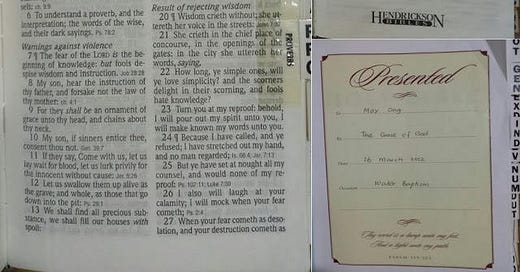 self: ch. 9:9
6 To understand a proverb, and the
interpretation; the words of the wise,
and their dark sayings. Ps. 78:2
Warnings against violence
7 ¶ The fear of the LORD is the
beginning of knowledge: but fools de-
spise wisdom and instruction. Job 28:28
8 My son, hear the instruction of
thy father, and forsake not the law of
thy mother: ch. 4:1
9 For they shall be an ornament of
grace unto thy head, and chains about
thy neck.
10 My son, if sinners entice thee,
consent thou not. Gen. 39:7
11 If they say, Come with us, let us
lay wait for blood, let us lurk privily for
the innocent without cause: Jer. 5:26
12 Let us swallow them up alive as
the grave; and whole, as those that go
down into the pit: Ps. 28:1
13 We shall find all precious sub-
stance, we shall fill our houses with
spoil:
Result of rejecting wisdom
20 ¶ Wisdom crieth without; she ut-
tereth her voice in the streets:
21 She crieth in the chief place of
concourse, in the openings of the
gates: in the city she uttereth her
words, saying,
22 How long, ye simple ones, will
ye love simplicity? and the scorners
delight in their scorning, and fools
hate knowledge?
23 Turn you at my reproof: behold,
I will pour out my spirit unto you, I
will make known my words unto you.
24 ¶ Because I have called, and ye
refused; I have stretched out my hand,
and no man regarded; Is. 66:4; Jer. 7:13
25 But ye have set at nought all my
counsel, and would none of my re-
proof: Ps. 107:11; Luke 7:30
26 I also will laugh at your
calamity; I will mock when your fear
cometh; Ps. 2:4
27 When your fear cometh as deso-
lation, and your destruction cometh as
PROVERBS
HENDRICKSON
BIBLES
Presented
To May Ong
The Grace of God
Date 16 March 2022
Occasion Water Baptism
Thy word is a lamp unto my feet,
And a light unto my path.
PSALM 119:105
GEN
EX
IND
NUM
DUT